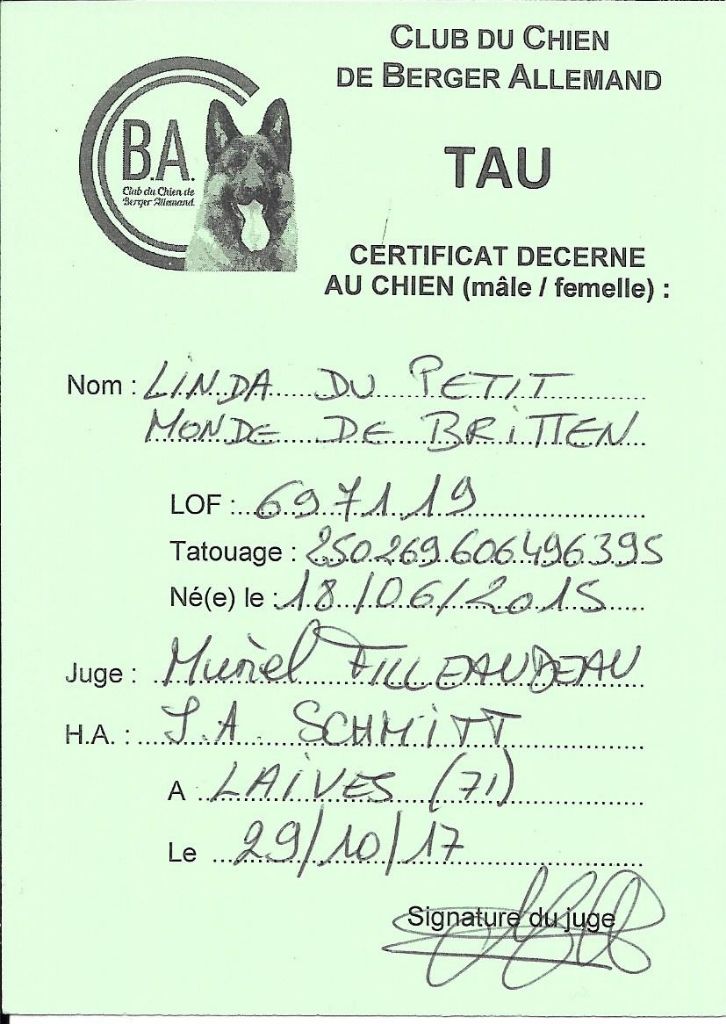 CLUB DU CHIEN
DE BERGER ALLEMAND
B.A.
Club du Chien de
Berger Allemand.
TAU
CERTIFICAT DECERNE
AU CHIEN (mâle / femelle) :
Nom : LINDA DU PETIT
MONDE DE BRITTEN
LOF : 697119
Tatouage : 250269606496395
Né(e) le : 18/06/2015
Juge : Muriel FILLEAUDEAU
H.A. : J.A. SCHMITT
A LAIVES (71)
Le 29/10/17
Signature du juge